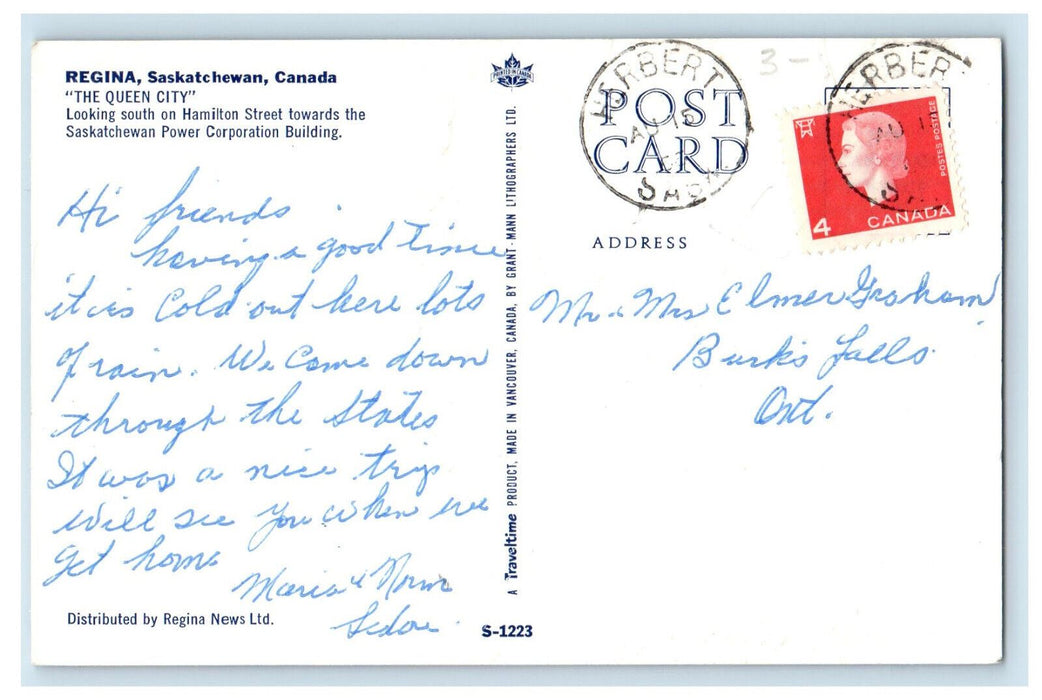 REGINA, Saskatchewan, Canada
"THE QUEEN CITY"
Looking south on Hamilton Street towards the
Saskatchewan Power Corporation Building.
Hi friends.
having a good time
it is Cold out here lots
of rain. We Come down
through the States
It was a nice trip
will see you when we
get home
&
Norm
Distributed by Regina News Ltd.
PRINTED IN CANADA
A Traveltime PRODUCT, MADE IN VANCOUVER, CANADA, BY GRANT-MANN LITHOGRAPHERS LTD.
S-1223
POST
CARD
ADDRESS
HERBERT
AU 15
SASK
3-
HERBERT
AU
4
CANADA
POSTES POSTAGE
Mr. & Mrs Elmer Graham
Burk's Falls.
Ont.